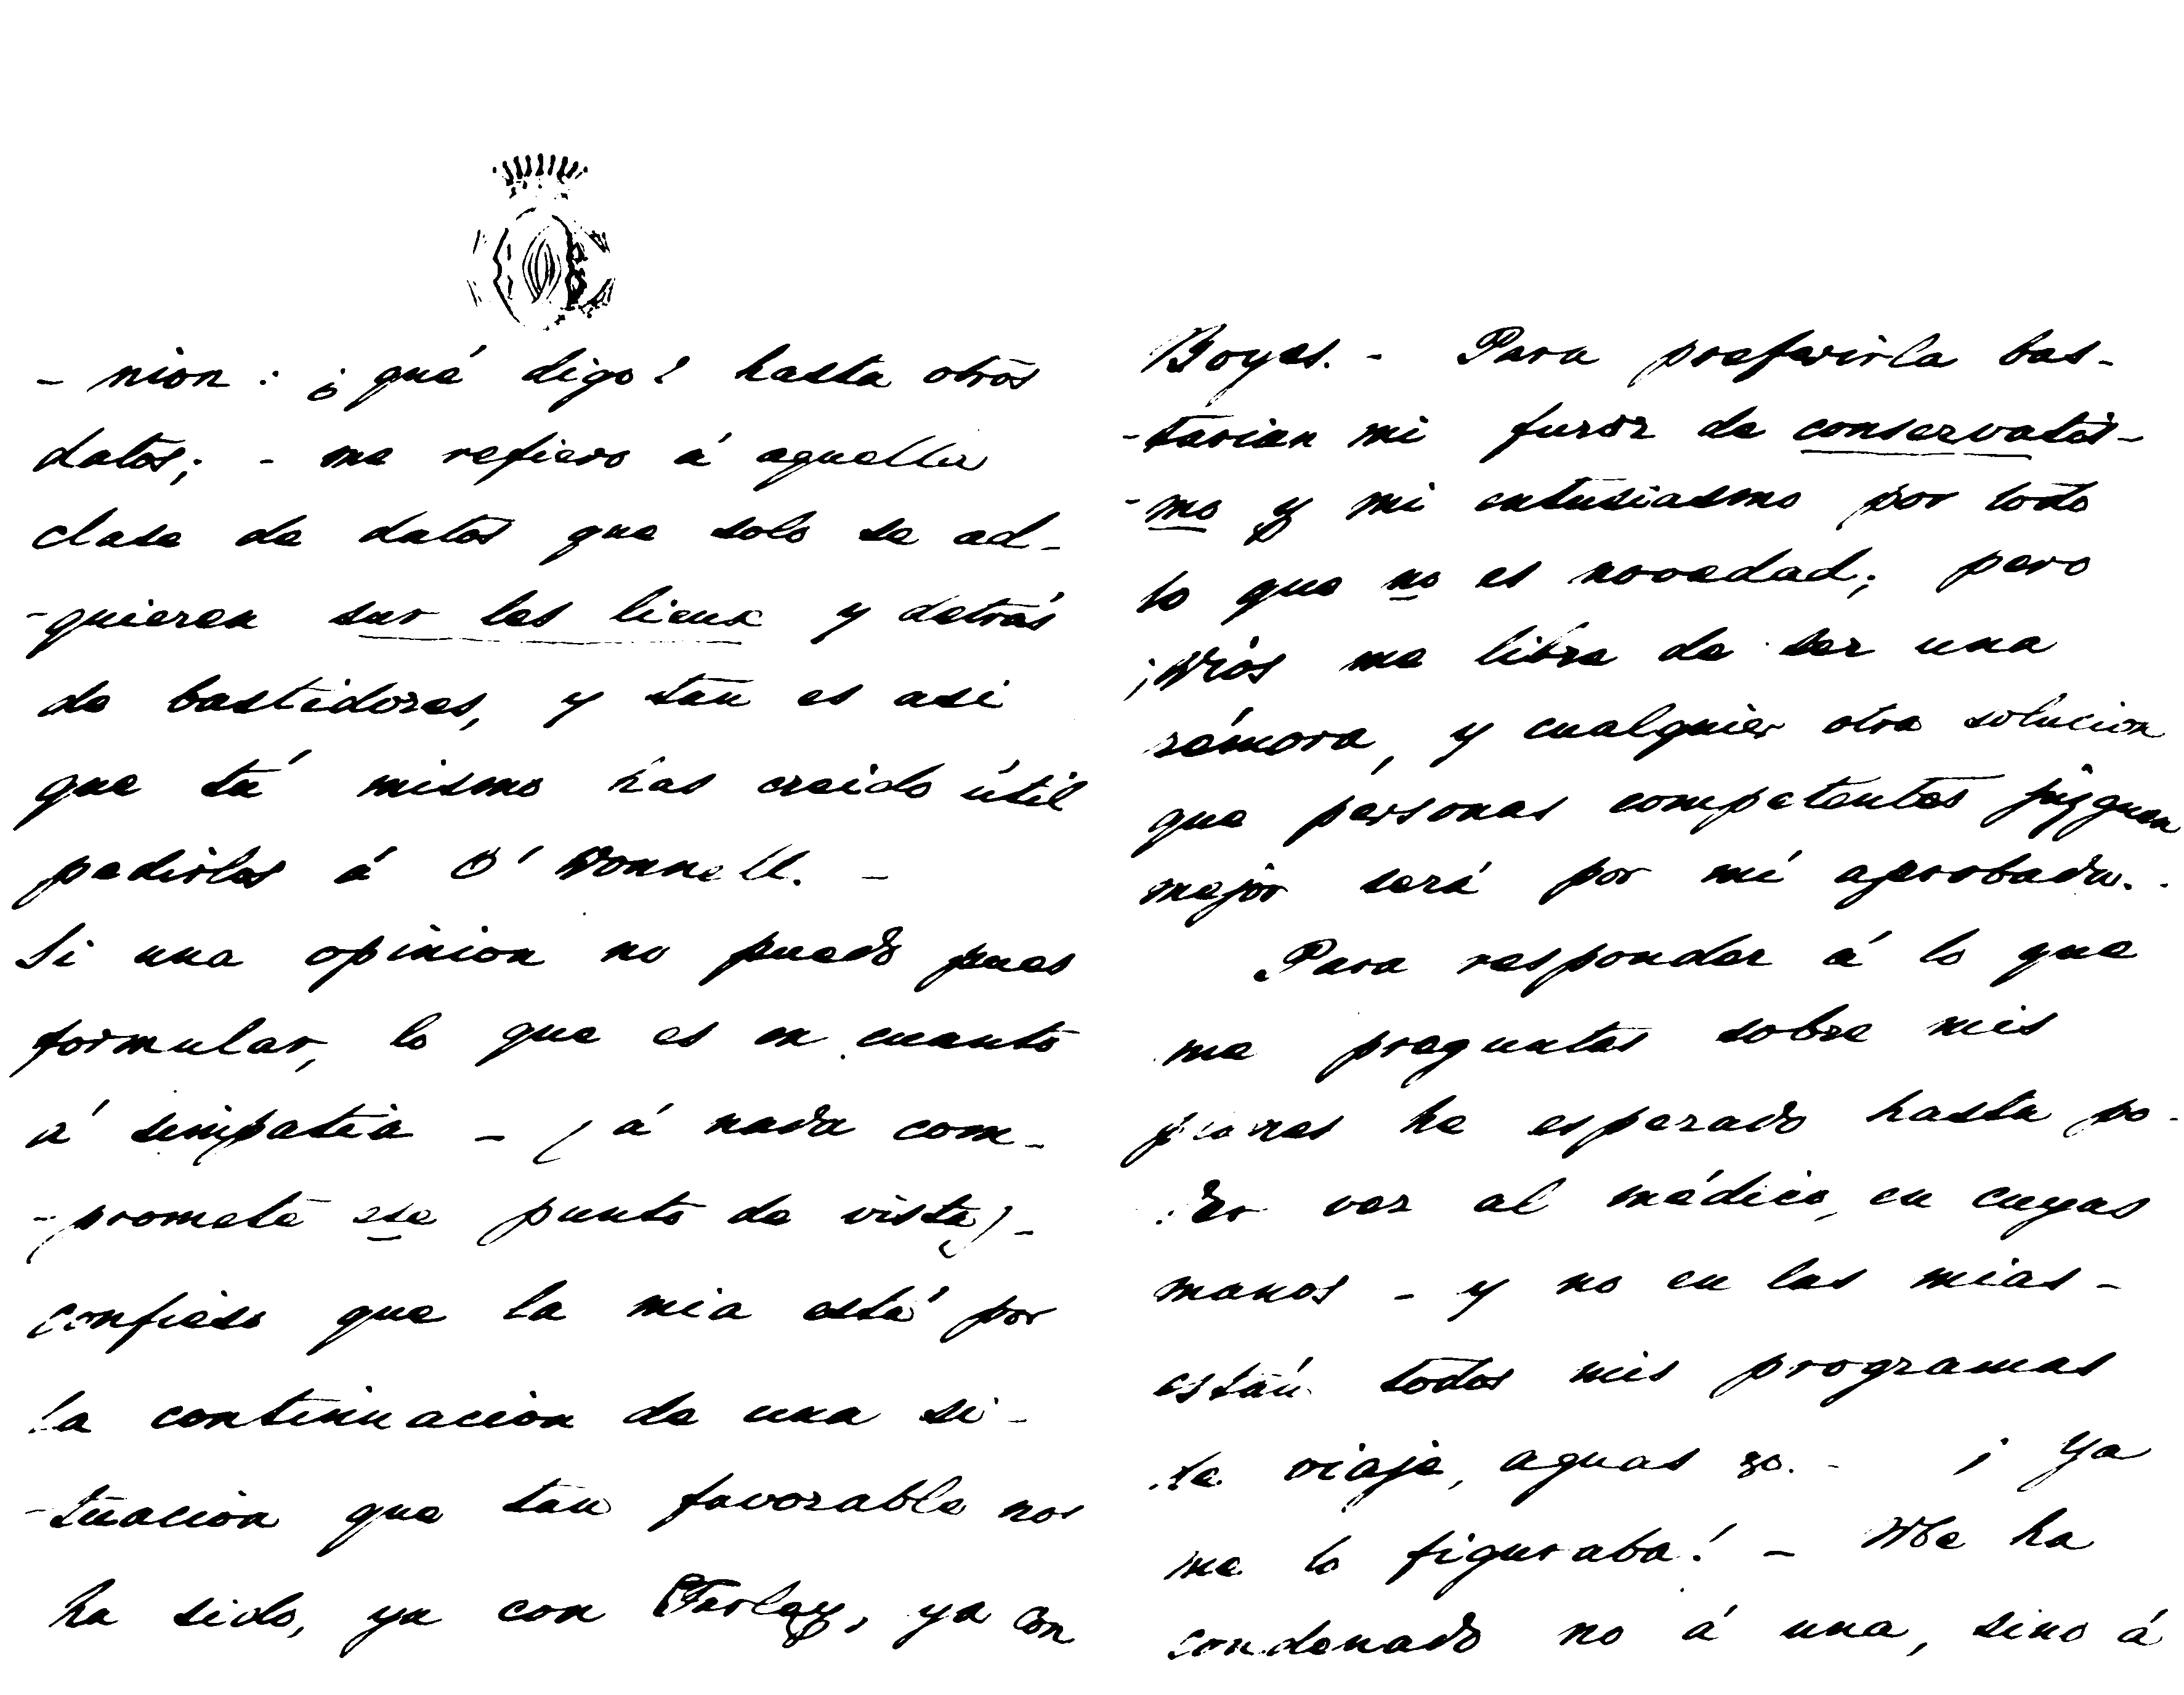 - nion: ¿qué digo? hasta otros
datos; - me refiero á aquella
clase de datos que solo se ad-
-quieren sur les lieux y detrás
de bastidores, y tan es asi
que tú mismo has creido útil
pedirlos á O'Donnell. -
Si una opinion no puedo pues
formular, lo que es en cuanto
á simpatia - (á nada com-
-promete ese punto de vista) -
confieso que la mia está por
la continuacion de una si-
-tuacion que tan favorable nos
ha sido, ya con Farlay, ya con
Boyes. - Para preferirla bas-
-tarian mi furor de conservatis-
-mo y mi entusiasmo por todo
lo que no es novedad; pero
¡Dios me libre de ser una
rémora, y cualquier otra solucion
que personas competentes juzguen
mejor será por mí aprobada.
Para responder á lo que
me preguntas sobre mis
planes he esperado hasta po-
der ver al médico, en cuyas
manos - y no en las mias -
están todos mis programas
de viaje, aguas &c. - ¡Ya
me lo figuraba! - Me ha
condenado no á una, sino á